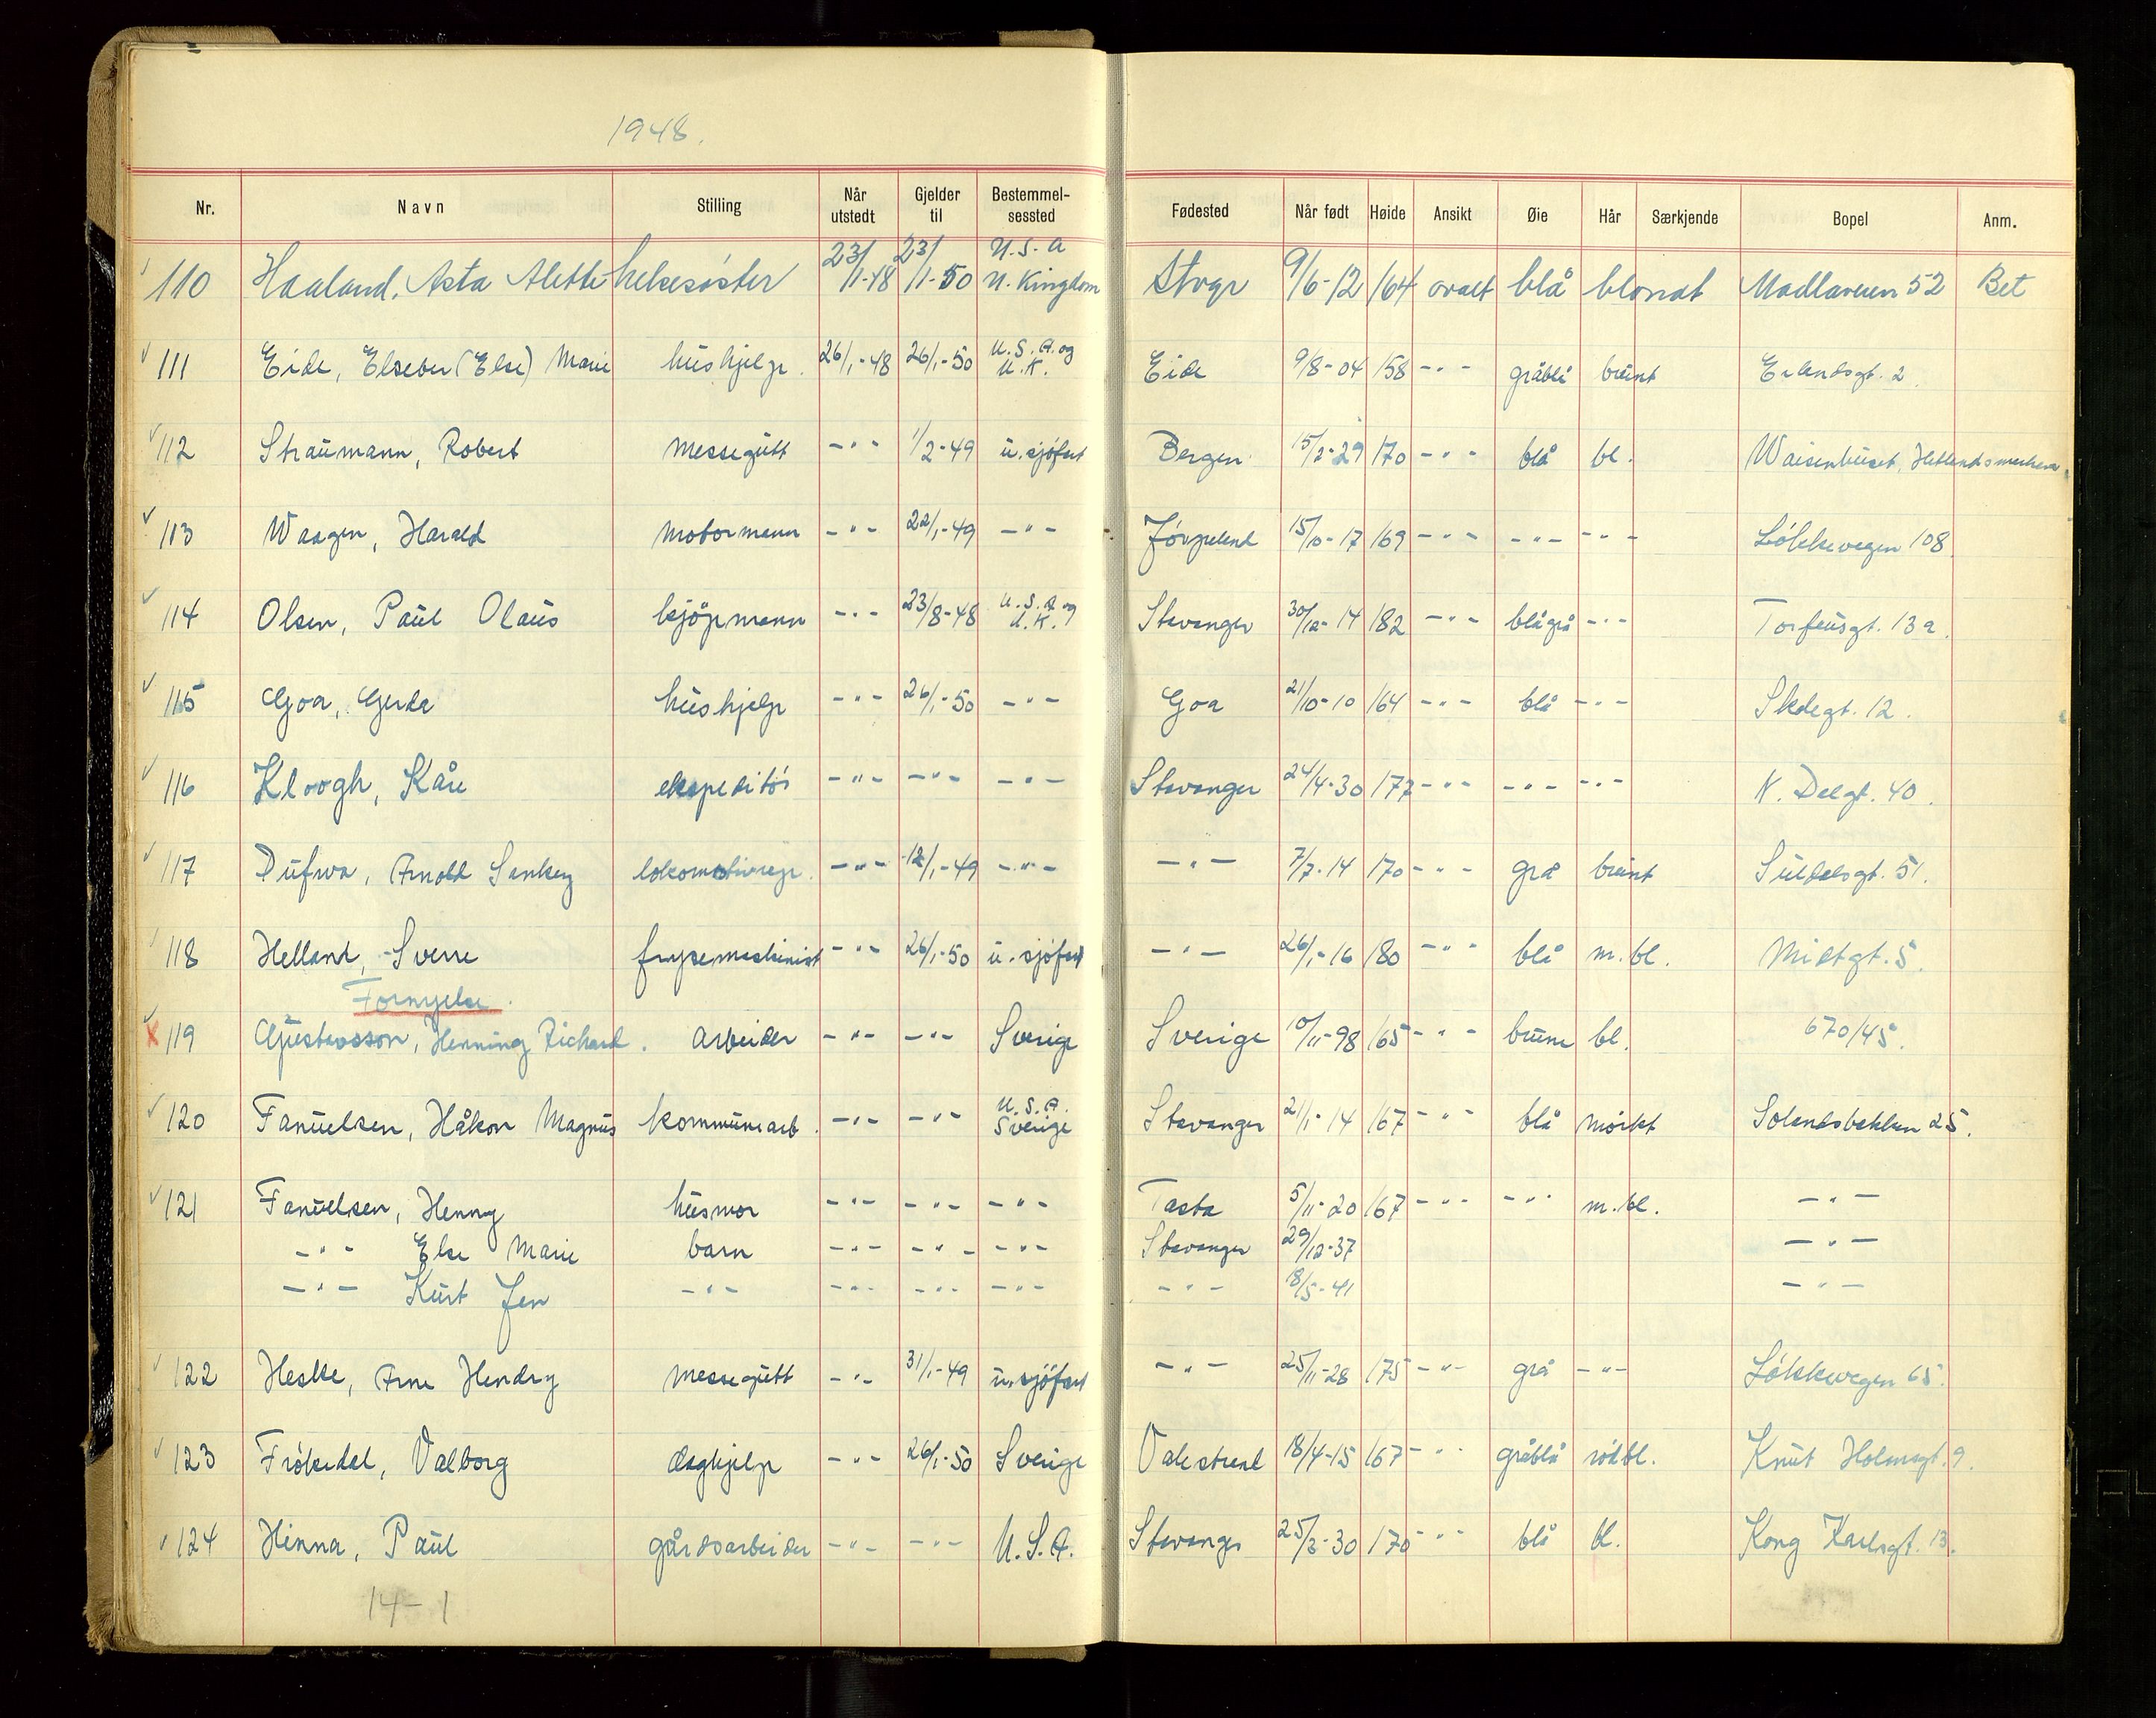 1948.
Nr. Navn Stilling Når utstedt Gjelder til Bestemmelsessted Fødested Når født Høide Ansikt Øie Hår Særkjende Bopel Anm.
110 Haaland, Asta Alette helsesøster 23/1-48 23/1-50 U.S.A U. Kingdom Stvgr 9/6-12 164 ovalt blå blondt Madlaveien 52 Bet
111 Eide, Elseber (Else) Marie hushjelp. 26/1-48 26/1-50 U.S.A. og U.K. Eide 9/8-04 158 -"- gråblå brunt Erlandsgt. 2.
112 Straumann, Robert messegutt -"- 1/2-49 u. sjøfart Bergen 15/2-29 170 -"- blå bl. Waisenhuset, Hetlandsmarken.
113 Waagen, Harald motormann -"- 22/1-49 -"- Jørpeland 15/10-17 169 -"- -"- -"- Løkkevegen 108.
114 Olsen, Paul Olaus kjøpmann -"- 23/8-48 U.S.A og U.K. Stavanger 30/12-14 182 -"- blågrå -"- Torfeusgt. 13a.
115 Goa, Gerda hushjelp -"- 26/1-50 -"- Goa 21/10-10 164 -"- blå -"- 12.
116 Kloogh, Kåre ekspeditør -"- -"- -"- Stavanger 24/4-30 177 -"- -"- -"- N. Dalgt. 40.
117 Dufwa, Arnold Sankey lokomotivrep. -"- 12/1-49 -"- -"- 7/7-14 170 -"- grå brunt Suldalsgt. 51.
118 Helland, Sverre frysemaskinist -"- 26/1-50 u. sjøfart -"- 26/1-16 180 -"- blå m. bl. Midtgt. 5.
Fornyelse.
X 119 Gustavsson, Henning Richard. arbeider -"- -"- Sverige Sverige 10/11-98 165 -"- brune bl. 670/45.
120 Fanuelsen, Håkon Magnus kommunearb. -"- -"- U.S.A. Sverige Stavanger 21/1-14 167 -"- blå mørkt Solandsbakken 25.
121 Fanuelsen, Henny husmor -"- -"- -"- Tasta 5/11-20 167 -"- -"- m. bl. -"-
-"- Else Marie barn -"- -"- -"- Stavanger 29/12-37 -"-
-"- Kurt Jan -"- -"- -"- -"- -"- 18/5-41 -"-
122 Heske, Arne Hendry messegutt -"- 31/1-49 u. sjøfart -"- 25/11-28 175 -"- grå -"- Løkkevegen 65.
123 Frøkedal, Valborg daghjelp -"- 26/1-50 Sverige Valestrand 18/4-15 167 -"- gråblå rødbl. Knut Holmsgt. 9.
124 Hinna, Paul gårdsarbeider -"- -"- U.S.A. Stavanger 25/2-30 170 -"- blå bl. Kong Karlsgt. 13.
14-1